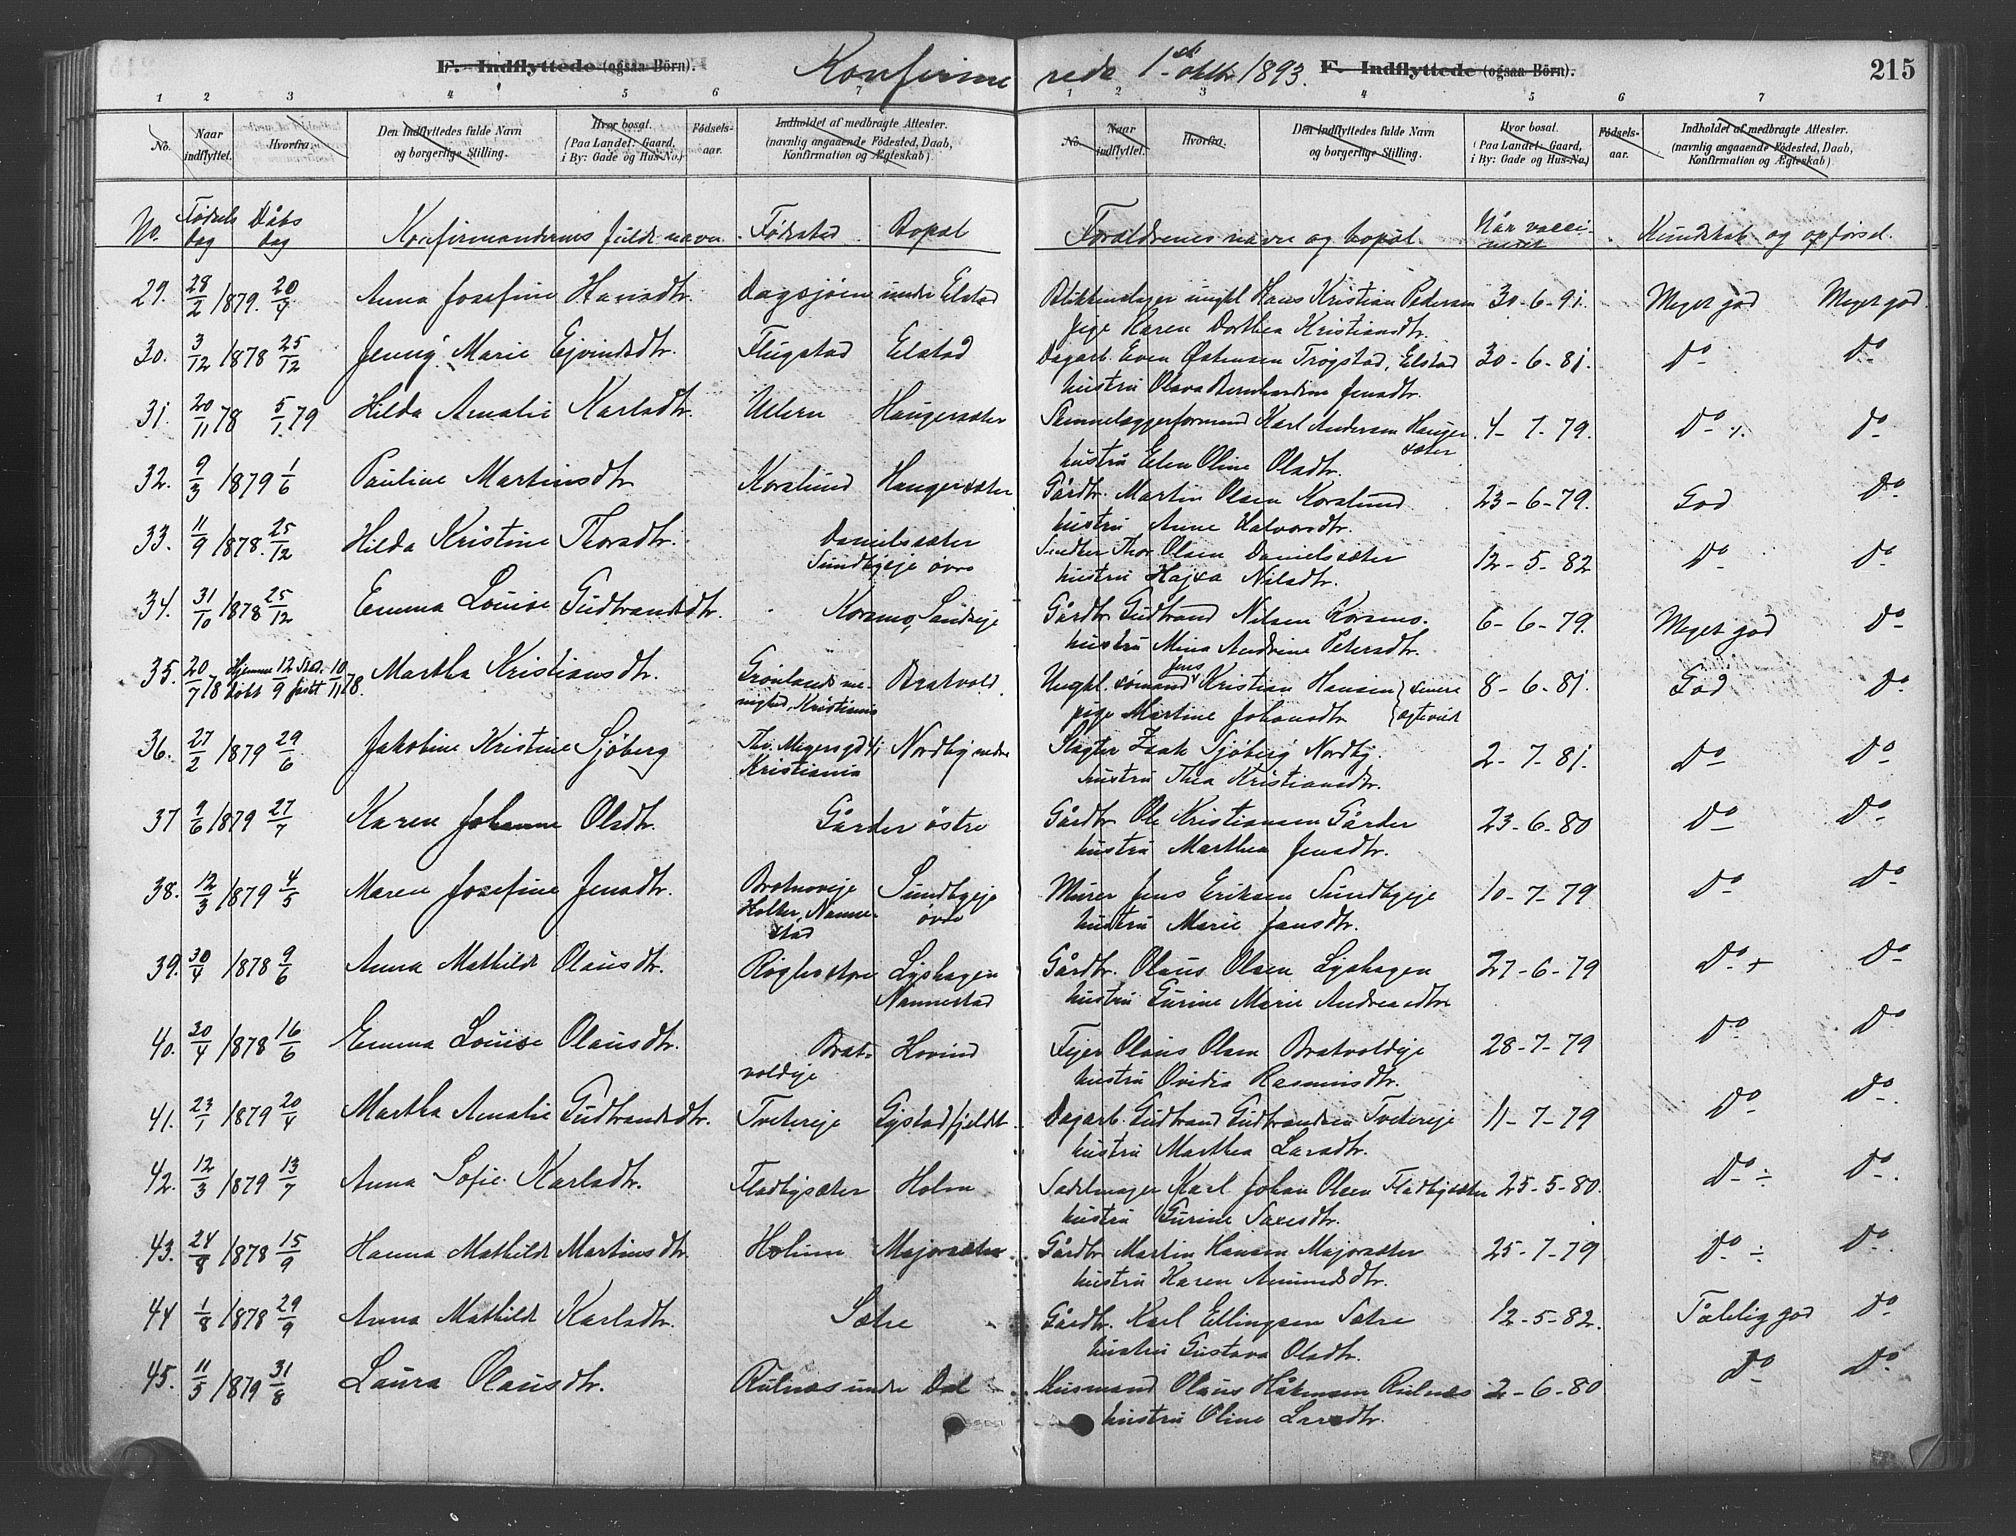 F. Indflyttede (ogsaa Börn). Konfirme rede 1ste oktbr 1893. F. Indflyttede (ogsaa Börn). 215
1 2 3 4 5 6 7 1 2 3 4 5 6 7
No. Naar indflyttet. Hvorfra. Den Indflyttedes fulde Navn og borgerlige Stilling. Hvor bosat. (Paa Landet: Gaard, i By: Gade og Hus-No.) Fødsels-aar. Indholdet af medbragte Attester. (navnlig angaaende Födested, Daab, Konfirmation og Ægteskab)
No. Naar indflyttet. Hvorfra. Den Indflyttedes fulde Navn og borgerlige Stilling. Hvor bosat. (Paa Landet: Gaard, i By: Gade og Hus-No.) Fødsels-aar. Indholdet af medbragte Attester. (navnlig angaaende Födested, Daab, Konfirmation og Ægteskab)
No. Fødsels dag Dåbs dag Konfirmandernes fulde navn Fødested Bopæl Forældrenes navne og bopæl. Når vaccineret Kundskab og opførsel.
29. 28/2 1879. 20/4 Anna Josefine Hansdtr. Dagsjøen under Elstad Blikkenslager ungkl Hans Kristian Pedersen 30-6-91. Meget god Meget god
pige Karen Dorthea Kristiansdtr.
30. 3/12 1878 25/12 Jenny Marie Ejvindsdtr. Flugstad Elstad Dagarb. Even Østensen Trøgstad, Elstad 30-6-81. Do Do
hustru Olava Bernhardine Jensdtr.
31. 20/11 78 5/1 79 Hilda Amalie Karlsdtr. Ullern Haugersæter Karl Andersen Hauger- 4-7-79. Do Do
sæter
hustru Ellen Oline Olsdtr.
32. 9/3 1879 1/6 Pauline Martinsdtr Korslund Haugersæter Gårdbr. Martin Olsen Korslund 23-6-79. God Do
hustru Anne Halvorsdtr.
33. 11/9 1878. 25/12 Hilda Kristine Thorsdtr. Danielssæter Thor Olsen Danielssæter 12-5-82 Do Do
Sundbyeje øvre hustru Nilsdtr.
34. 31/10 1878 25/12 Emma Louise Gudbrandsdtr. Korsmo, Sandseje Gårdbr Gudbrand Nilsen Korsmo. 6-6-79. Meget god Do
hustru Mina Andrine Petersdtr.
35. 20/7 78 Hjemme døbt 12/9 Stad. fæstet 10/11 78. Martha Kristiansdtr. Grønlands me- Bratvold Ungkl. sømand Jens Kristian Hansen } senere 8-6-81. God Do
nighed, Kristiania pige Martine Johansdtr } ægteviet
36. 27/2 1879 29/6 Jakobine Kristine Sjøberg Th. Meyersgd 41 Nordby nedre Slagter Isak Sjøberg Nordby. 2-7-81. Do Do
Kristiania hustru Thea Kristiansdtr.
37 9/6 1879 27/7 Karen Johanne Olsdtr. Gårder østre Gårdbr Ole Kristiansen Gårder 23-6-80 Do Do
hustru Marthea Jensdtr.
38. 12/3 1879 4/5 Maren Josefine Jensdtr. Sundbyeje Murer Jens Eriksen Sundbyeje 10-7-79 Do Do
Holter, Nanne- øvre hustru Marie Jansdtr.
stad
39. 30/4 1878 9/6 Anna Mathilde Olausdtr. Røgler store Lyshagen Gårdbr. Olaus Olsen Lyshagen 27-6-79 Do + Do
Nannestad hustru Gurine Marie Andreasdtr
40. 30/4 1878 16/6 Emma Louise Olausdtr. Brat- Hovind Fejer Olaus Olsen Bratvoldeje 28-7-79 Do Do
voldeje hustru Ovidia Rasmusdtr.
41. 23/1 1879 20/4 Martha Amalie Gudbrandsdtr. Tveitereje Gystadfjeldet Dagarb. Gudbrand Gudbrandsen Tveitereje 11-7-79 Do Do.
hustru Marthea Larsdtr.
42. 12/3 1879 13/7 Anna Sofie Karlsdtr. Fladbysæter Holm Sadelmager Karl Johan Olsen Fladbysæter 25-5-80. Do ÷ Do.
hustru Gurine Saxesdtr.
43. 24/8 1878 15/9 Hanna Mathilde Martinsdtr. Holum Majorsæter Gårdbr Martin Hansen Majorsæter 25-7-79 Do ÷ Do.
hustru Karen Amundsdtr.
44 1/8 1878 29/9 Anna Mathilde Karlsdtr. Sætre Gårdbr. Karl Ellingsen Sætre 12-5-82. Tålelig god Do
hustru Gustava Olsdtr.
45. 11/5 1879 31/8 Laura Olausdtr. Rulnæs under Dal Husmand Olaus Håkensen Rulnæs 2-6-80 Do Do.
hustru Oline Larsdtr.